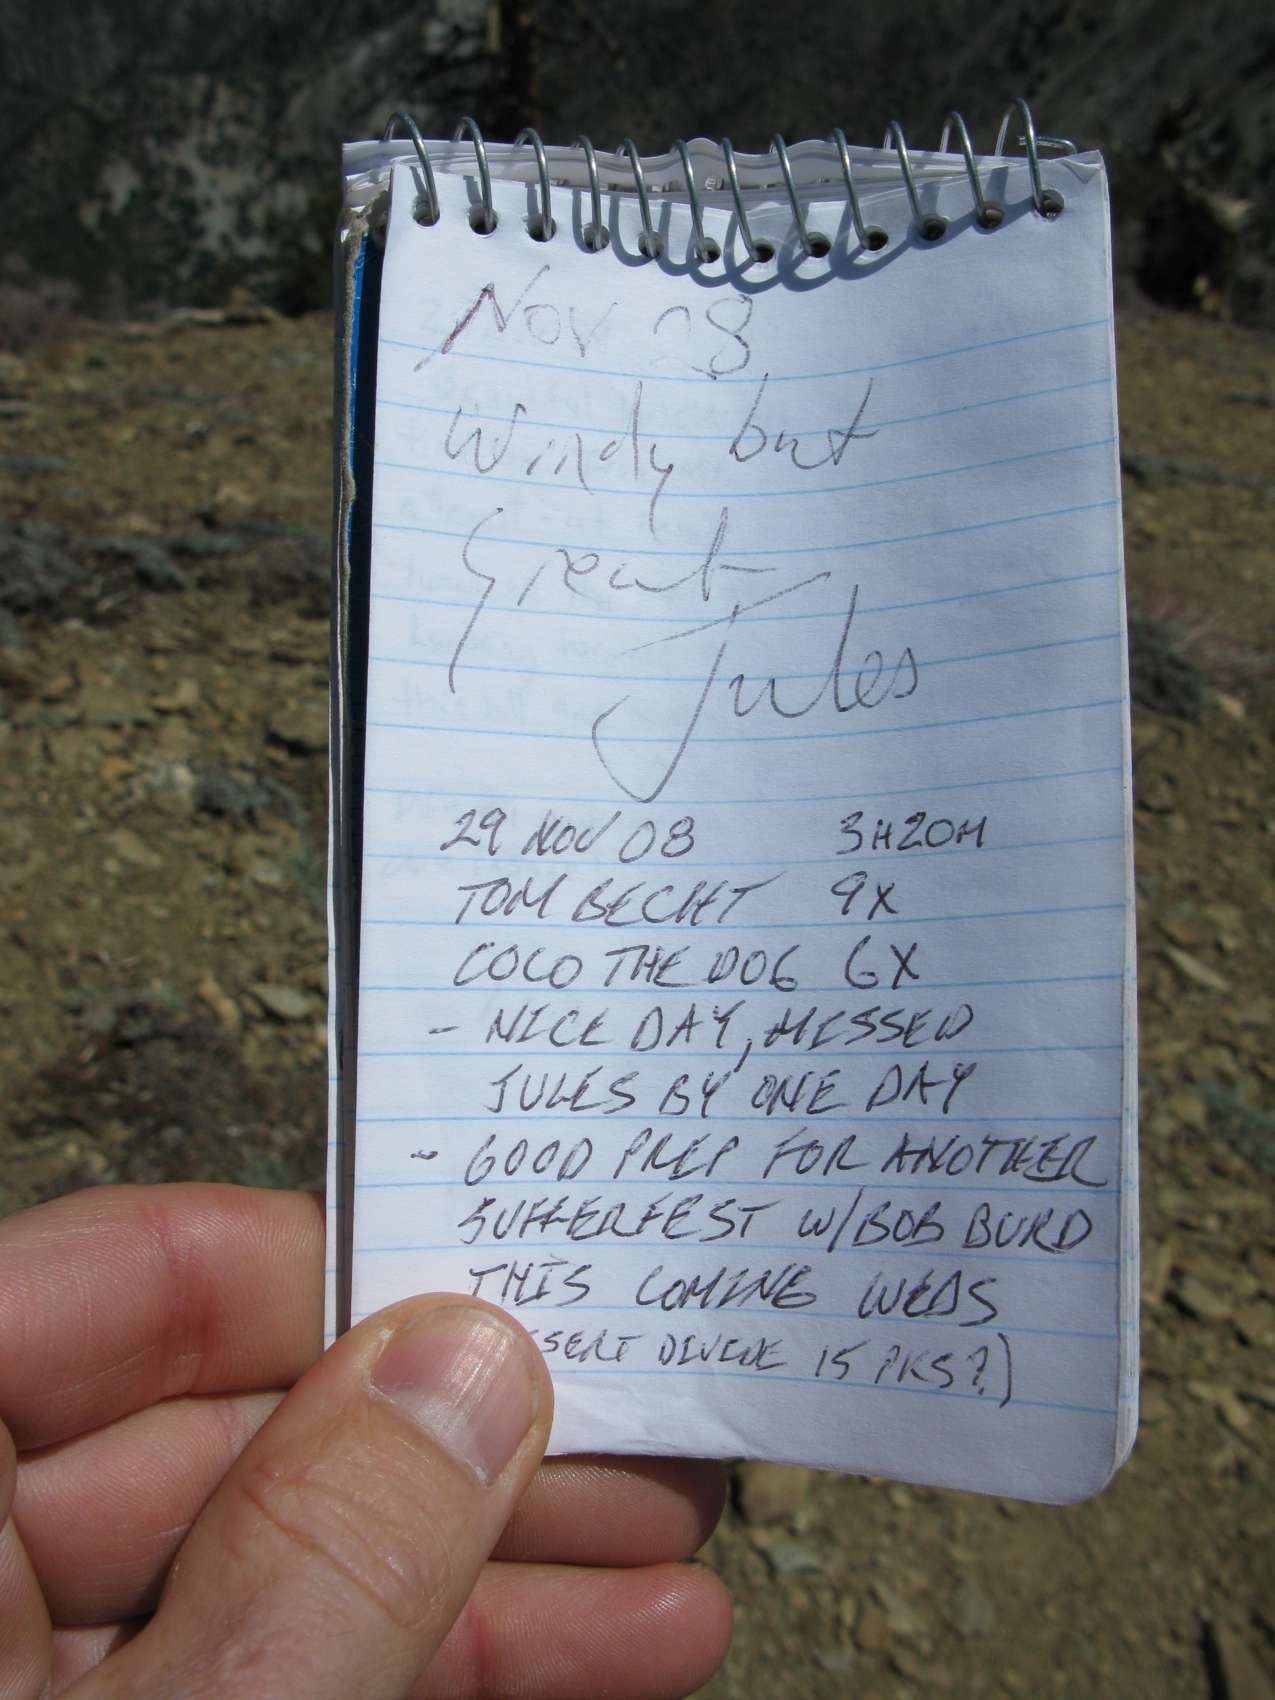 Nov 28
Windy but
Great
Jules
29 NOV 08 3H20M
TOM BECHT 9X
COCO THE DOG 6X
- NICE DAY, MISSED
JULES BY ONE DAY
- GOOD PREP FOR ANOTHER
SUFFERFEST W/BOB BURD
THIS COMING WEDS
SERT DIVIDE 15 PKS?)